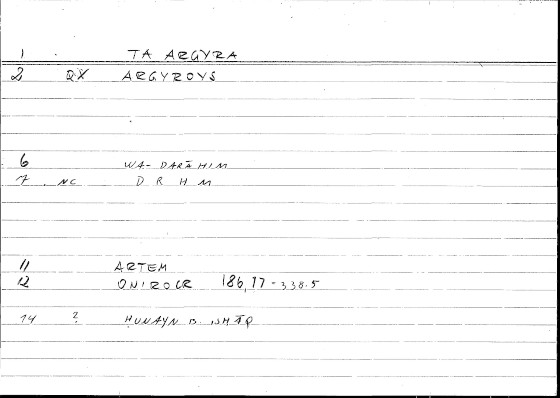 1 TA ARGYRA
2 QX ARGYROYS
6 WA-DARĀHIM
7 NC D R H M
11 ARTEM
12 ONIROCR 186,17-338.5
14 ? ḤUNAYN B. ISḤĀQ